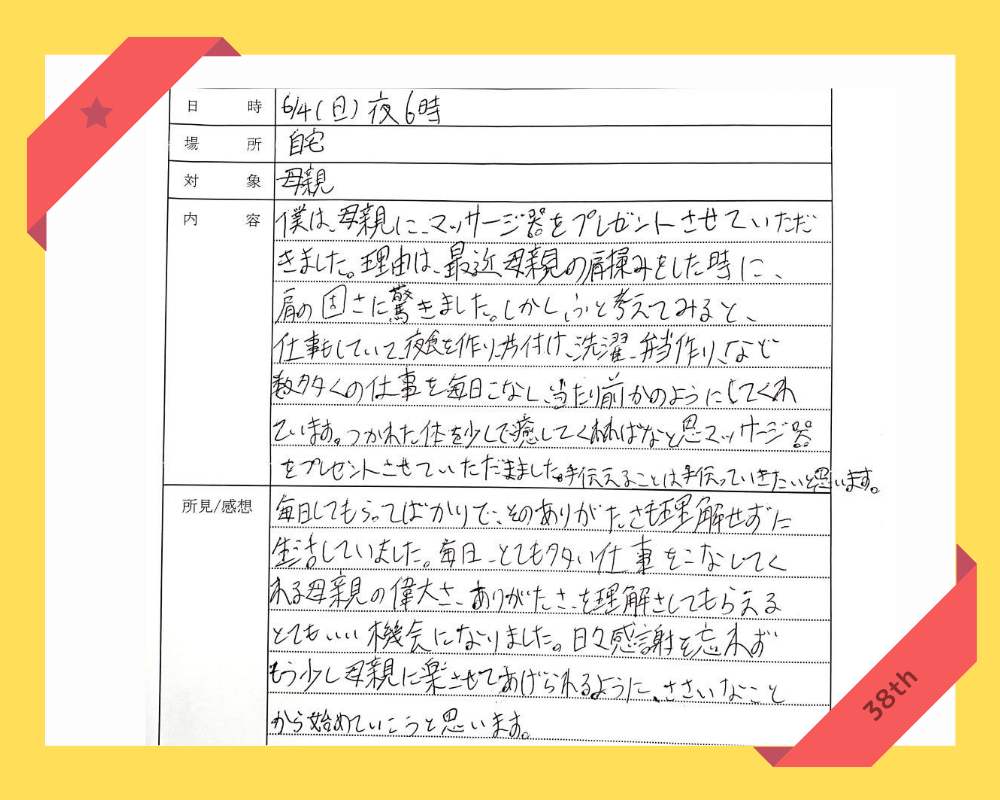 日時 6/4(日)夜6時
場所 自宅
対象 母親
内容 僕は、母親に、マッサージ器をプレゼントさせていただ
きました。理由は、最近母親の肩揉みをした時に、
肩の固さに驚きました。しかし、ふと考えてみると、
仕事もしていて、夜食を作り、片付け、洗濯、弁当作り、など
数多くの仕事を毎日こなし、当たり前かのようにしてくれ
ています。つかれた体を少しで癒してくれればなと思マッサージ器
をプレゼントさせていただきました。手伝えることは手伝っていきたいと思います。
所見/感想 毎日してもらってばかりで、そのありがたさも理解せずに
生活していました。毎日、とても多い仕事をこなしてく
れる母親の偉大さ、ありがたさ、を理解さしてもらえる
とてもいい機会になりました。日々感謝を忘れず
もう少し母親に楽させてあげられるように、ささいなこと
から始めていこうと思います。
38th